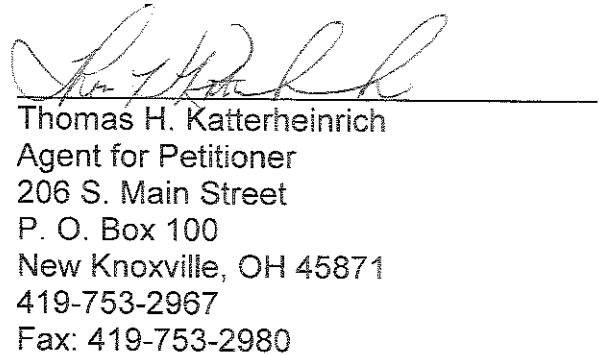 Thomas H. Katterheinrich
Agent for Petitioner
206 S. Main Street
P. O. Box 100
New Knoxville, OH 45871
419-753-2967
Fax: 419-753-2980